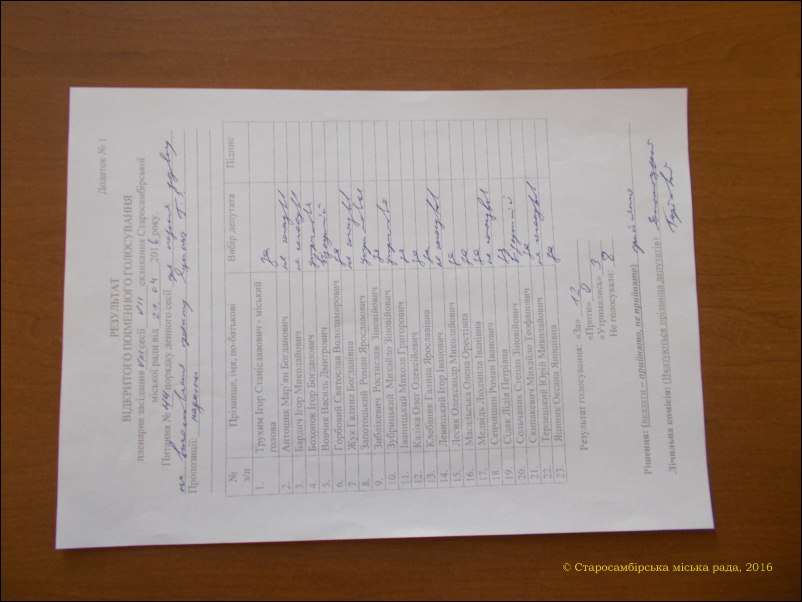 Додаток № 1
РЕЗУЛЬТАТ
ВІДКРИТОГО ПОІМЕННОГО ГОЛОСУВАННЯ
пленарне засідання VIII сесії VII скликання Старосамбірської
міської ради від 21.04 2016 року.
Питання № порядку денного сесії
Пропозиції:
№ з/п Прізвище, імя, по-батькові Вибір депутата Підпис
1. Трухим Ігор Станіславович - міський голова за
2. Антошик Мар'ян Богданович не голосував
3. Бардич Ігор Миколайович не голосував
4. Богдан Богданович
5. Вовчик Василь Дмитрович відсутній
6. Горбовий Святослав Володимирович за
7. Жук Галина Богданівна не голосувала
8. Роман Ярославович утримався
9. Ростислав Зіновійович за
10. Зубрицький Михайло Зіновійович утримався
11. Іваницький Микола Григорович за
12. Каліка Олег Олексійович за
13. Клебанич Галина Ярославівна за
14. Левицький Ігор Іванович не голосував
15. Лесик Олександр Миколайович за
16. Олена Орестівна за
17. Медвідь Людмила Іванівна за
18. Роман Іванович не голосував
19. Сідяк Лідія Петрівна за
20. Сольчаник Степан Зіновійович відсутній
21. Михайло Теофанович за
22. Терлецький Юрій Миколайович не голосував
23. Яніщик Оксана Яношівна за
Результат голосування: «За» 12
«Проти» 0
«Утримались» 3
Не голосували: 8
Рішення: (вказати – прийнято, не прийнято) прийнято
Лічильна комісія: (Вказуються прізвища депутатів)
© Старосамбірська міська рада, 2016